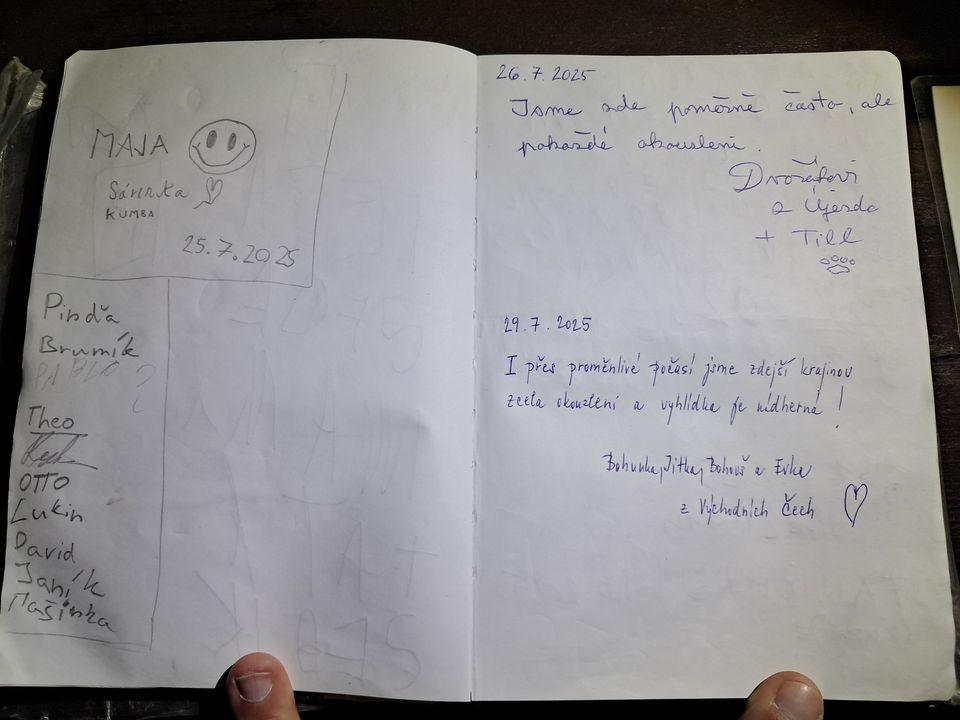 MAJA
Sárinka
KUMBA
25.7.2025
Pinďa
Brumík
Theo
OTTO
Lukin
David
Janík
Mašinka
26.7.2025
Jsme zde poměrně často, ale
pokaždé okouzleni.
a
+ Till
29.7.2025
I přes proměnlivé počasí jsme zdejší krajinou
zcela okouzlení a vyhlídka je nádherná!
Bohunka, Jitka, Bohouš a Evka
z Východních Čech